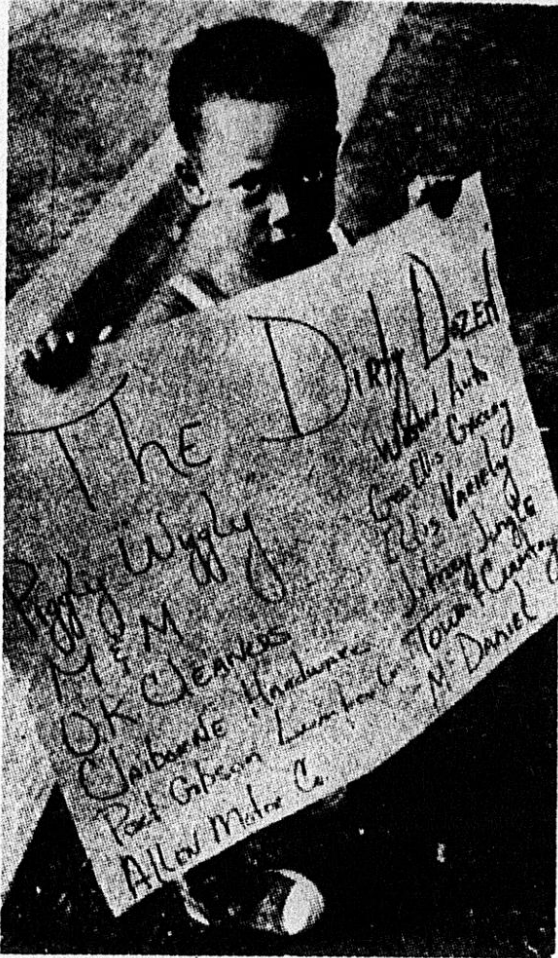 The Dirty Dozen
Piggly Wiggly
M & M
OK Cleaners
Claiborne Hardware
Port Gibson Lumber Co
Allen Motor Co.
Western Auto
Geo Ellis Grocery
Ellis Variety
Jitney Jungle
Town & Country
McDaniel